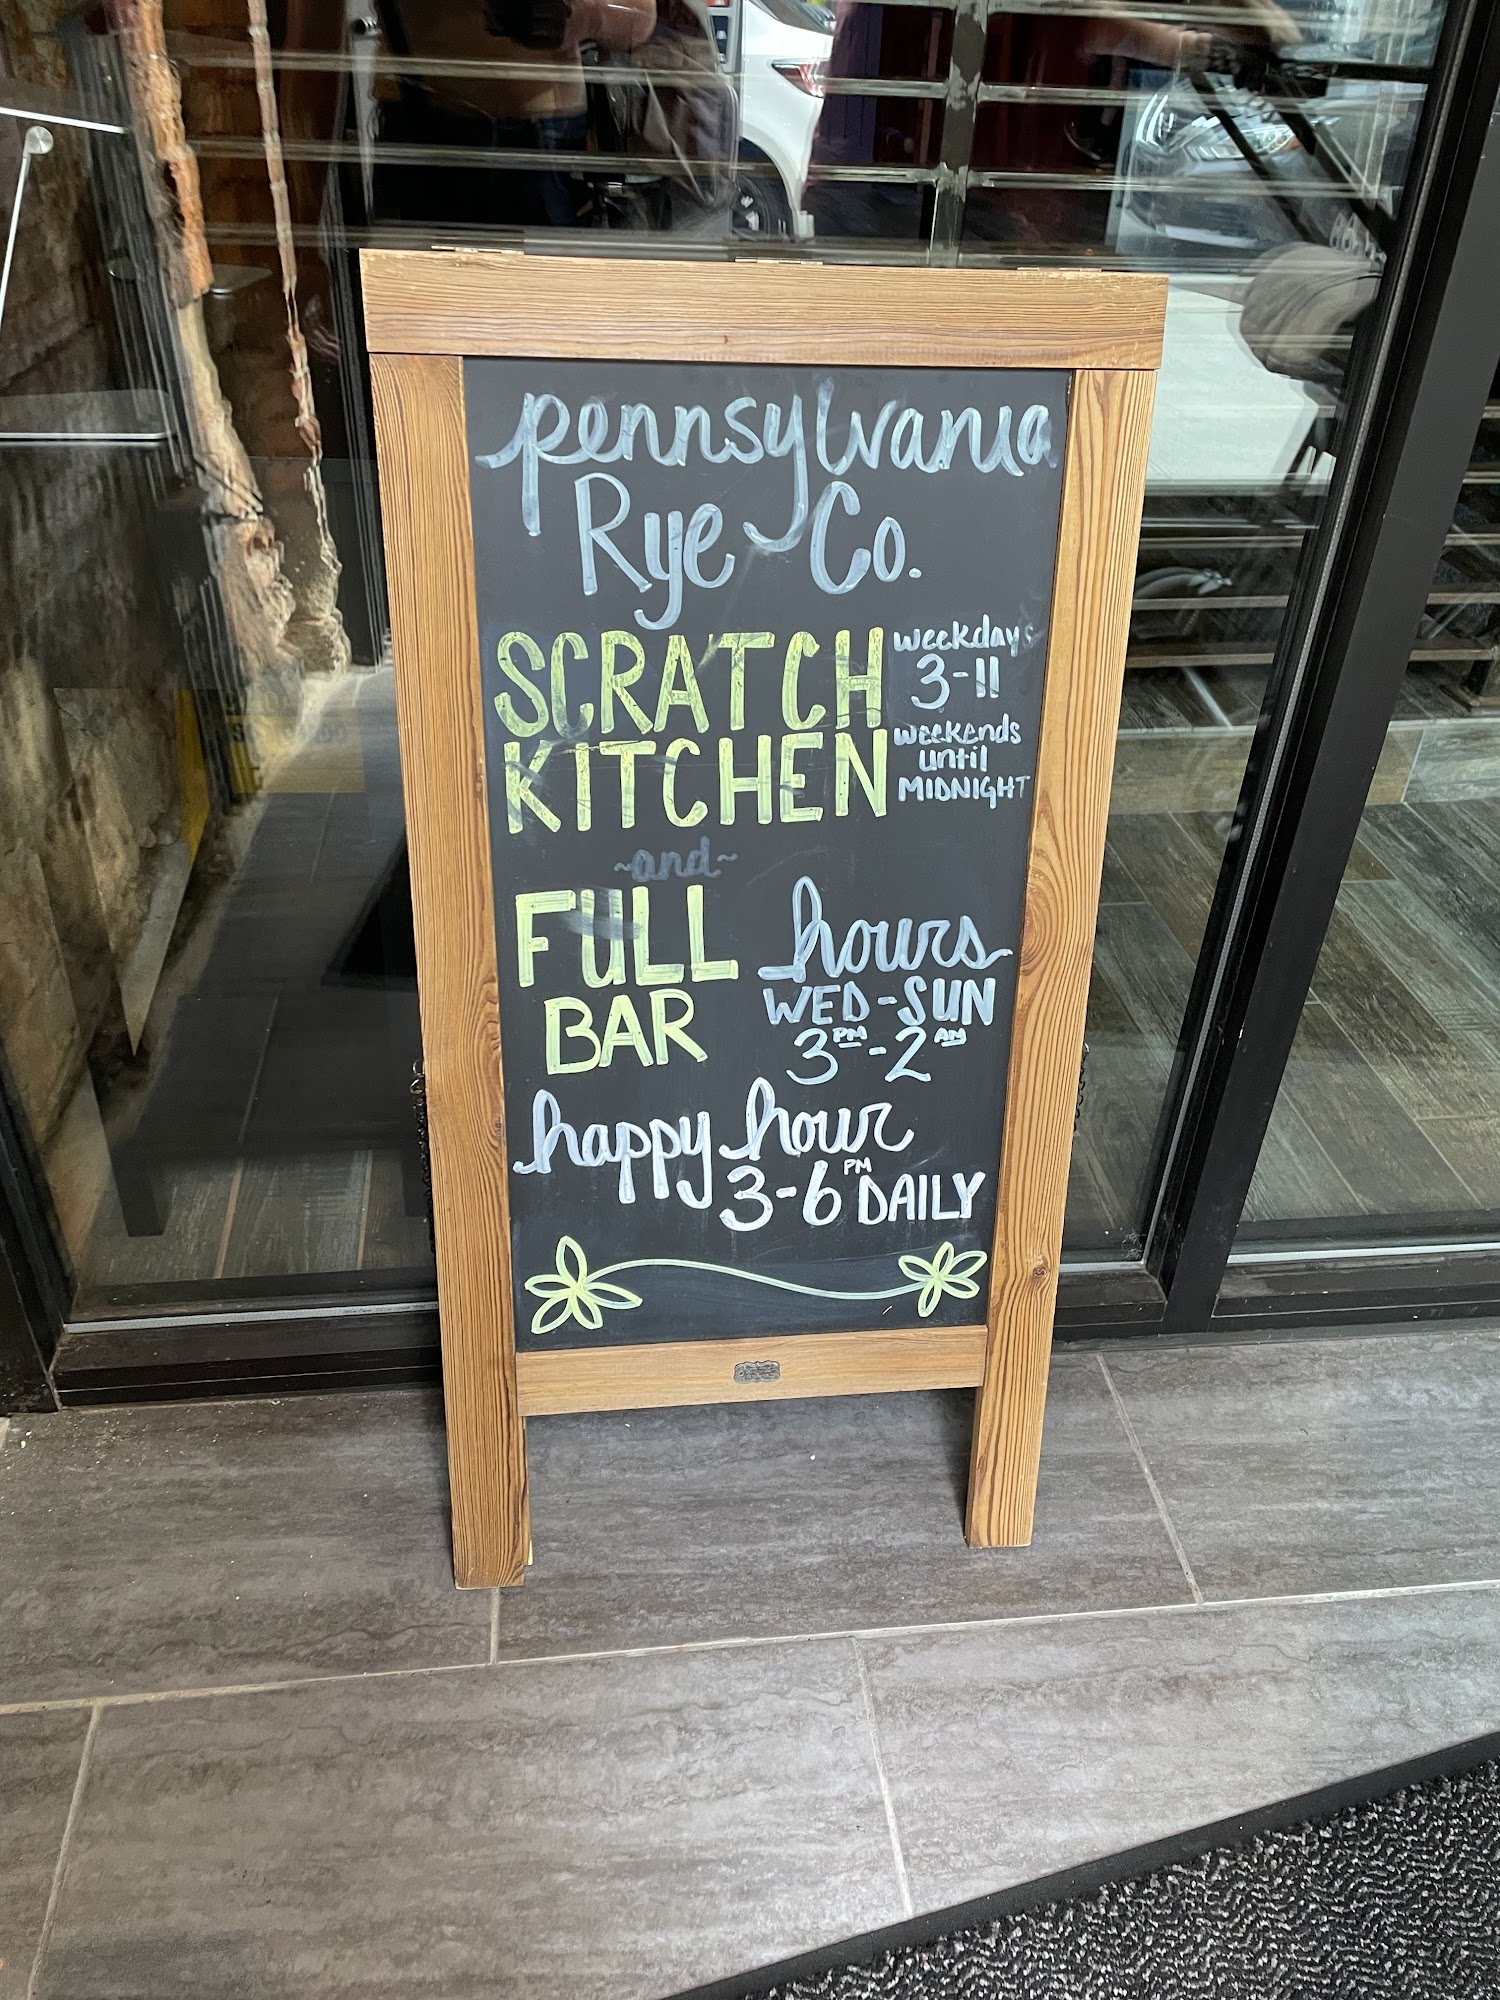 pennsylvania
Rye Co.
SCRATCH
KITCHEN
weekdays
3-11
weekends
until
MIDNIGHT
~and~
FULL
BAR
hours
WED-SUN
3PM-2AM
happy hour
3-6PM DAILY